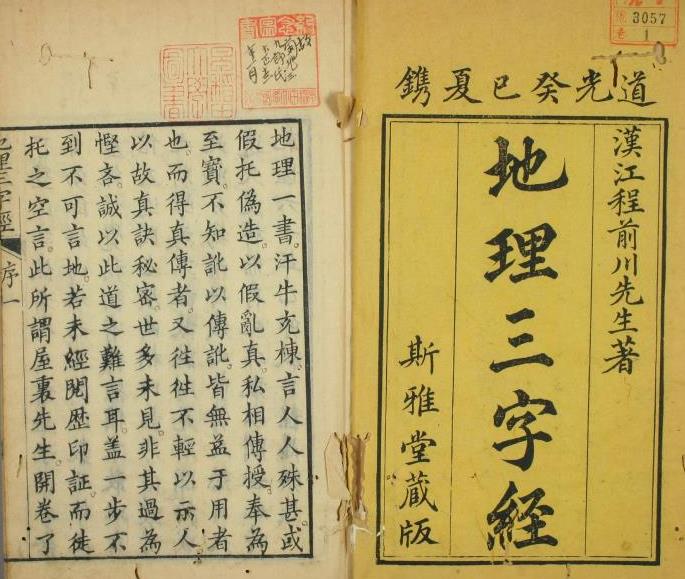 3057
1
道光癸巳夏鐫
漢江程前川先生著
地理三字經
斯雅堂藏版
地理一書。汗牛充棟。言人人殊甚。或
假托偽造。以假亂真。私相傳授。奉為
至寶。不知訛以傳訛。皆無益于用者
也。而得真傳者。又徃徃不輕以示人
以故真訣秘密。世多未見。非其過為
慳吝。誠以此道之難言耳。盖一步不
到不可言地。若未經閱歷印証而徒
托之空言。此所謂屋裏先生。開卷了
地理三字經 序一